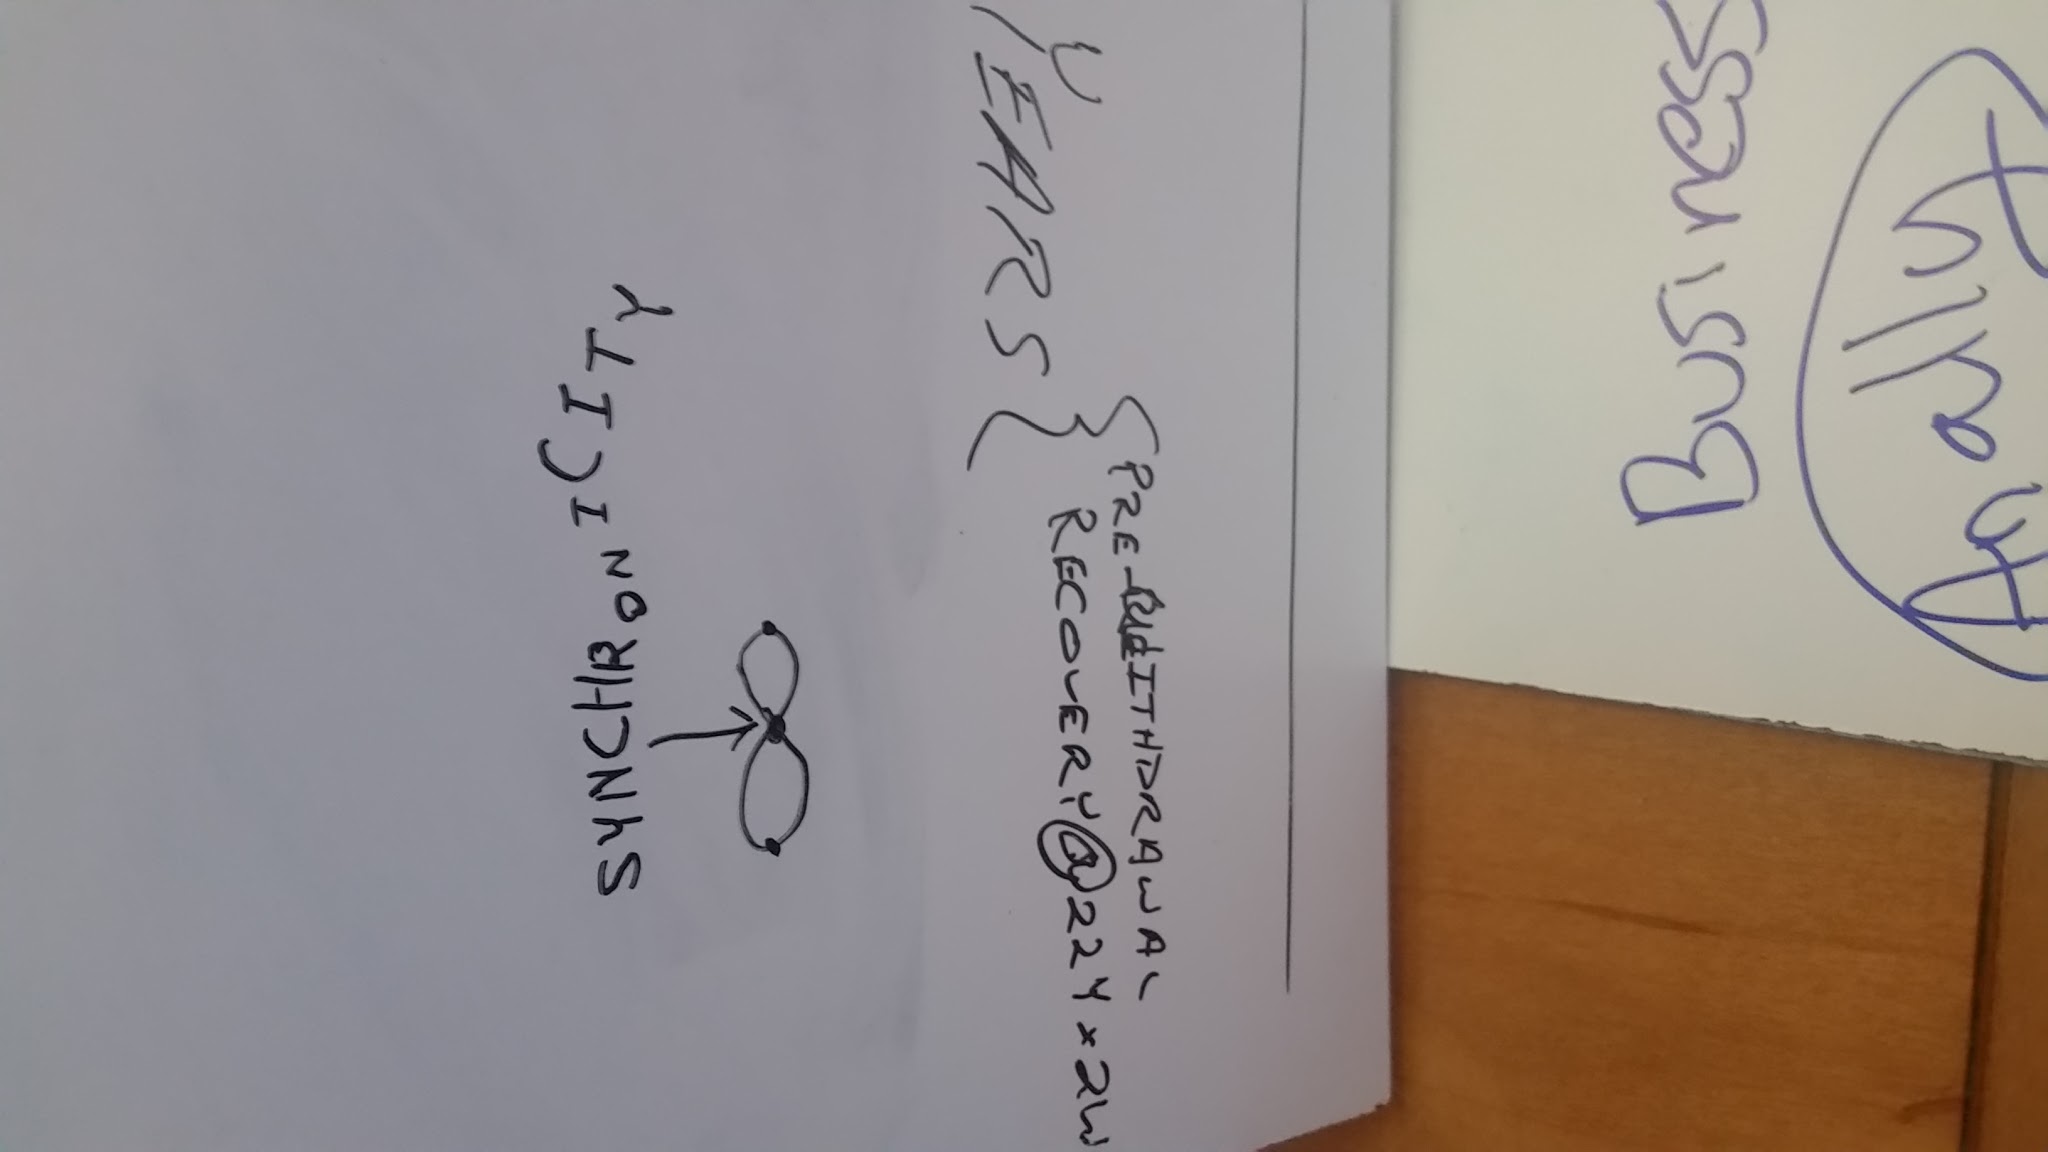 SYNCHRONICITY
YEARS
PRE-WITHDRAWAL
RECOVERY @ 22Y x 2W
Business
Anally